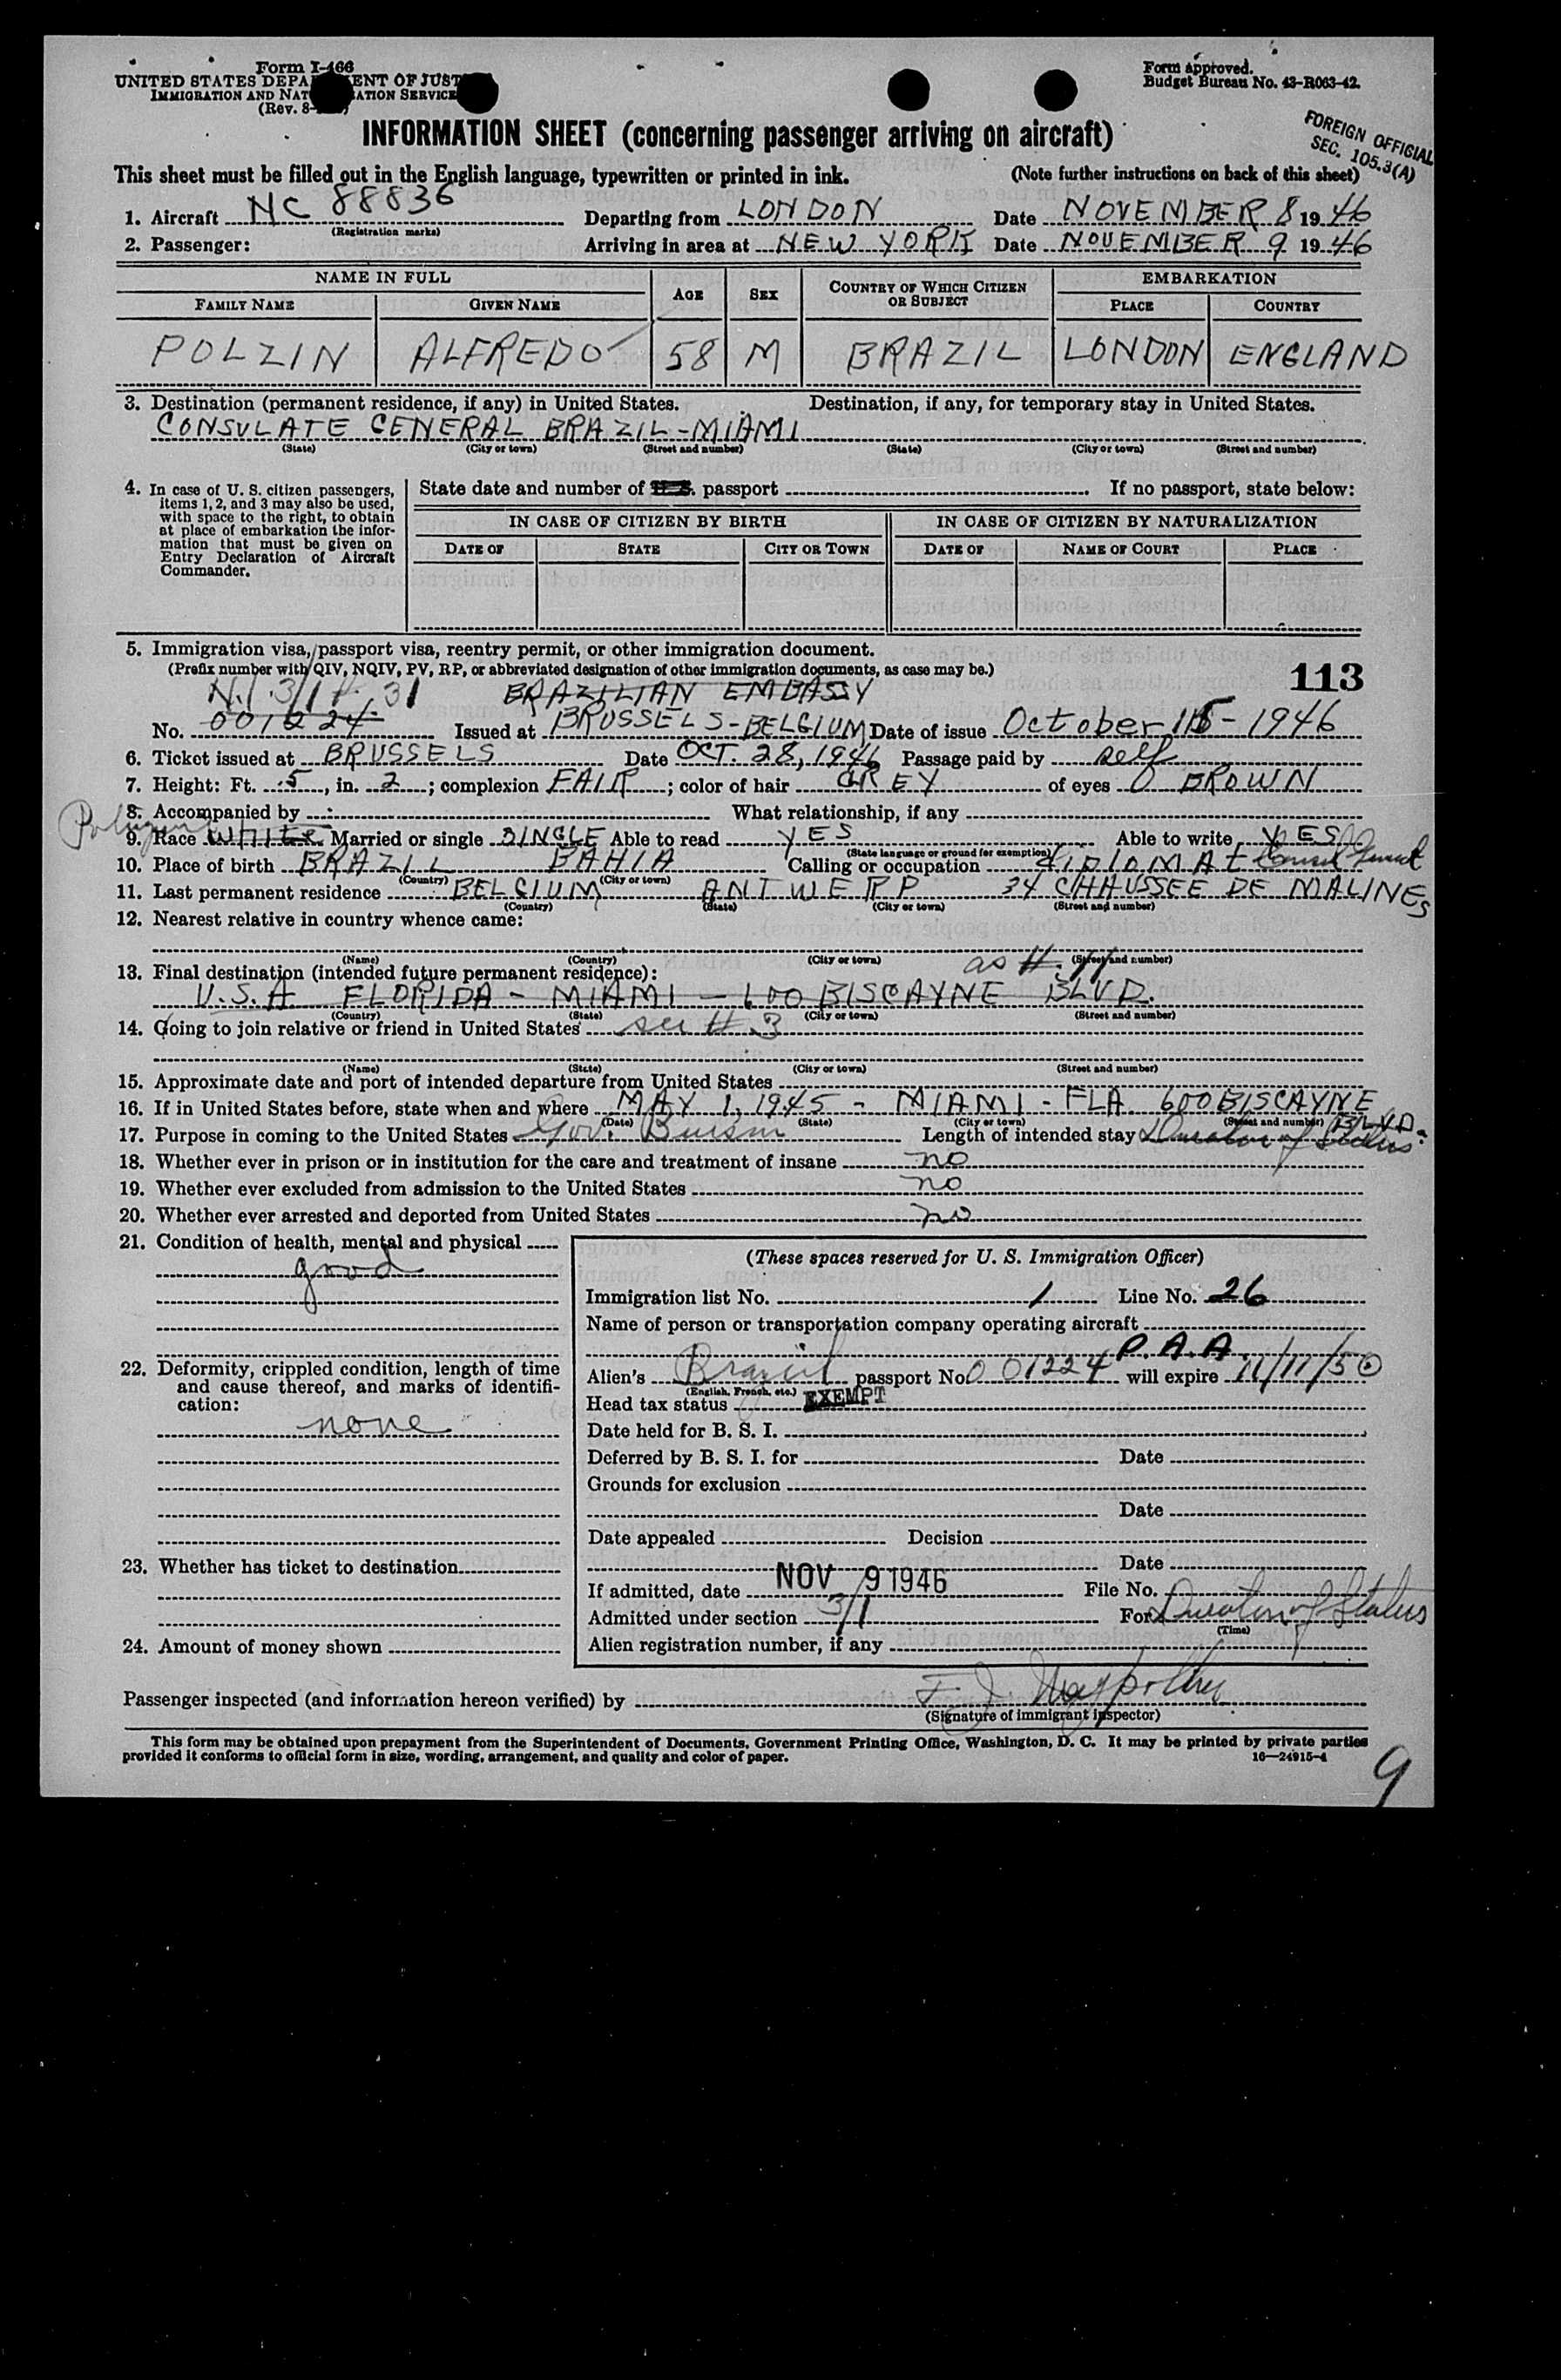 Form I-466
UNITED STATES DEPA ENT OF JUST
IMMIGRATION AND NAT ATION SERVICE
(Rev. 8-
Form approved.
Budget Bureau No. 43-R063-42.
FOREIGN OFFICIAL
SEC. 105.3(A)
INFORMATION SHEET (concerning passenger arriving on aircraft)
This sheet must be filled out in the English language, typewritten or printed in ink. (Note further instructions on back of this sheet)
1. Aircraft NC 88836 Departing from LONDON Date NOVEMBER 8 1946
(Registration marks)
2. Passenger: Arriving in area at NEW YORK Date NOVEMBER 9 1946
NAME IN FULL AGE SEX COUNTRY OF WHICH CITIZEN OR SUBJECT EMBARKATION
FAMILY NAME GIVEN NAME PLACE COUNTRY
POLZIN ALFREDO 58 M BRAZIL LONDON ENGLAND
3. Destination (permanent residence, if any) in United States. Destination, if any, for temporary stay in United States.
CONSULATE GENERAL BRAZIL-MIAMI
(State) (City or town) (Street and number) (State) (City or town) (Street and number)
4. In case of U. S. citizen passengers, items 1, 2, and 3 may also be used, with space to the right, to obtain at place of embarkation the information that must be given on Entry Declaration of Aircraft Commander.
State date and number of U. S. passport If no passport, state below:
IN CASE OF CITIZEN BY BIRTH IN CASE OF CITIZEN BY NATURALIZATION
DATE OF STATE CITY OR TOWN DATE OF NAME OF COURT PLACE
5. Immigration visa, passport visa, reentry permit, or other immigration document.
(Prefix number with QIV, NQIV, PV, RP, or abbreviated designation of other immigration documents, as case may be.)
113
31 BRAZILIAN EMBASSY
No. 001224 Issued at BRUSSELS-BELGIUM Date of issue October 15-1946
6. Ticket issued at BRUSSELS Date OCT. 28, 1946 Passage paid by self
7. Height: Ft. 5, in. 2; complexion FAIR; color of hair GREY of eyes BROWN
8. Accompanied by What relationship, if any
9. Race WHITE Married or single SINGLE Able to read YES Able to write YES
(State language or ground for exemption)
10. Place of birth BRAZIL BAHIA Calling or occupation diplomat
(Country) (City or town)
11. Last permanent residence BELGIUM ANTWERP 34 CHAUSSEE DE MALINES
(Country) (State) (City or town) (Street and number)
12. Nearest relative in country whence came:
(Name) (Country) (City or town) (Street and number)
13. Final destination (intended future permanent residence): as #. 11
U.S.A FLORIDA - MIAMI - 600 BISCAYNE BLVD.
(Country) (State) (City or town) (Street and number)
14. Going to join relative or friend in United States see #.3
(Name) (State) (City or town) (Street and number)
15. Approximate date and port of intended departure from United States
16. If in United States before, state when and where MAY 1, 1945 - MIAMI - FLA. 600 BISCAYNE BLVD.
(Date) (State) (City or town) (Street and number)
17. Purpose in coming to the United States Gov. Busin Length of intended stay Duration of Status
18. Whether ever in prison or in institution for the care and treatment of insane no
19. Whether ever excluded from admission to the United States no
20. Whether ever arrested and deported from United States no
21. Condition of health, mental and physical
good
22. Deformity, crippled condition, length of time and cause thereof, and marks of identification:
none
23. Whether has ticket to destination
24. Amount of money shown
(These spaces reserved for U. S. Immigration Officer)
Immigration list No. 1 Line No. 26
Name of person or transportation company operating aircraft
P.A.A.
Alien's Brazil passport No. 001224 will expire 11/11/50
(English, French, etc.)
Head tax status EXEMPT
Date held for B. S. I.
Deferred by B. S. I. for Date
Grounds for exclusion
Date
Date appealed Decision
Date
If admitted, date NOV 9 1946 File No.
Admitted under section 3/1 For Duration of Status
(Time)
Alien registration number, if any
Passenger inspected (and information hereon verified) by
(Signature of immigrant inspector)
This form may be obtained upon prepayment from the Superintendent of Documents, Government Printing Office, Washington, D. C. It may be printed by private parties
provided it conforms to official form in size, wording, arrangement, and quality and color of paper. 16—24915-4
9